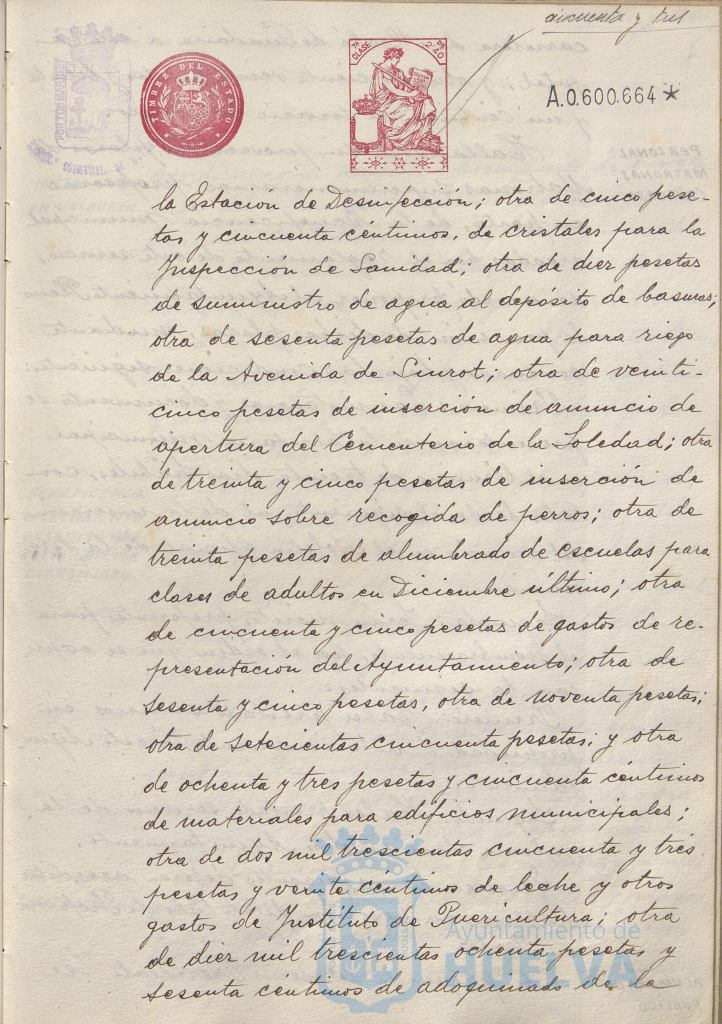 cincuenta y tres
TIMBRE DEL ESTADO
7ª CLASE
PS 2'40
A.0.600.664 *
la Estación de Desinfección; otra de cinco pese-
tas y cincuenta céntimos, de cristales para la
Inspección de Sanidad; otra de diez pesetas
de suministro de agua al depósito de basuras;
otra de sesenta pesetas de agua para riego
de la Avenida de Siurot; otra de veinti-
cinco pesetas de inserción de anuncio de
apertura del Cementerio de la Soledad; otra
de treinta y cinco pesetas de inserción de
anuncio sobre recogida de perros; otra de
treinta pesetas de alumbrado de escuelas para
clases de adultos en Diciembre último; otra
de cincuenta y cinco pesetas de gastos de re-
presentación del Ayuntamiento; otra de
sesenta y cinco pesetas, otra de noventa pesetas;
otra de setecientas cincuenta pesetas; y otra
de ochenta y tres pesetas y cincuenta céntimos
de materiales para edificios municipales;
otra de dos mil trescientas cincuenta y tres
pesetas y veinte céntimos de leche y otros
gastos de Instituto de Puericultura; otra
de diez mil trescientas ochenta pesetas y
sesenta céntimos de adoquinado de la
Ayuntamiento de
HUELVA